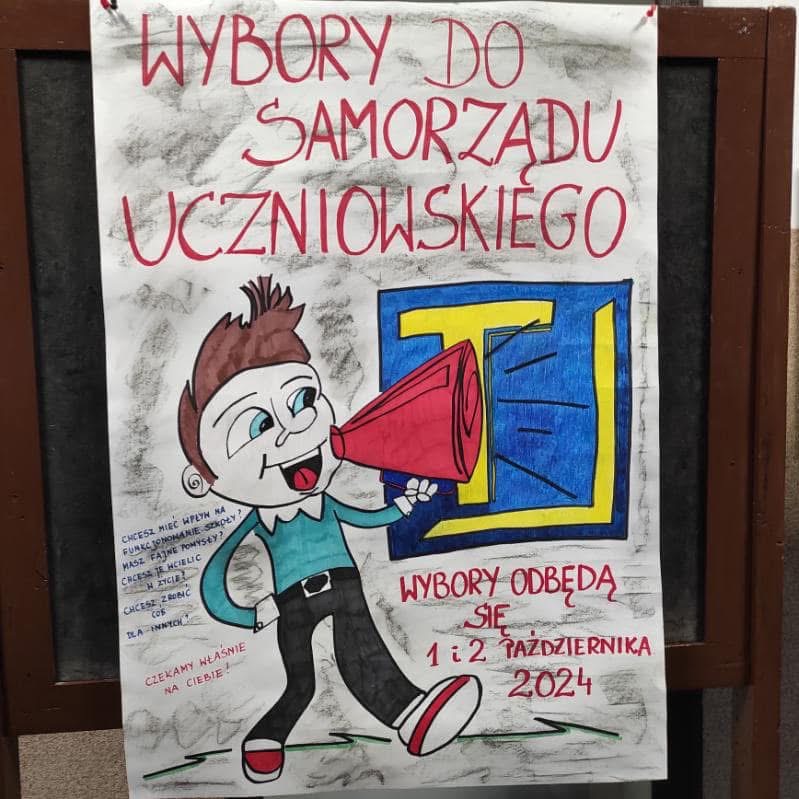 WYBORY DO
SAMORZĄDU
UCZNIOWSKIEGO
CHCESZ MIEĆ WPŁYW NA
FUNKCJONOWANIE SZKOŁY?
MASZ FAJNE POMYSŁY?
CHCESZ JE WCIELIC
W ŻYCIE?
CHCESZ ZROBIĆ
COŚ
DLA INNYCH?
CZEKAMY WŁAŚNIE
NA CIEBIE!
WYBORY ODBĘDĄ
SIĘ
1 i 2 PAŹDZIERNIKA
2024